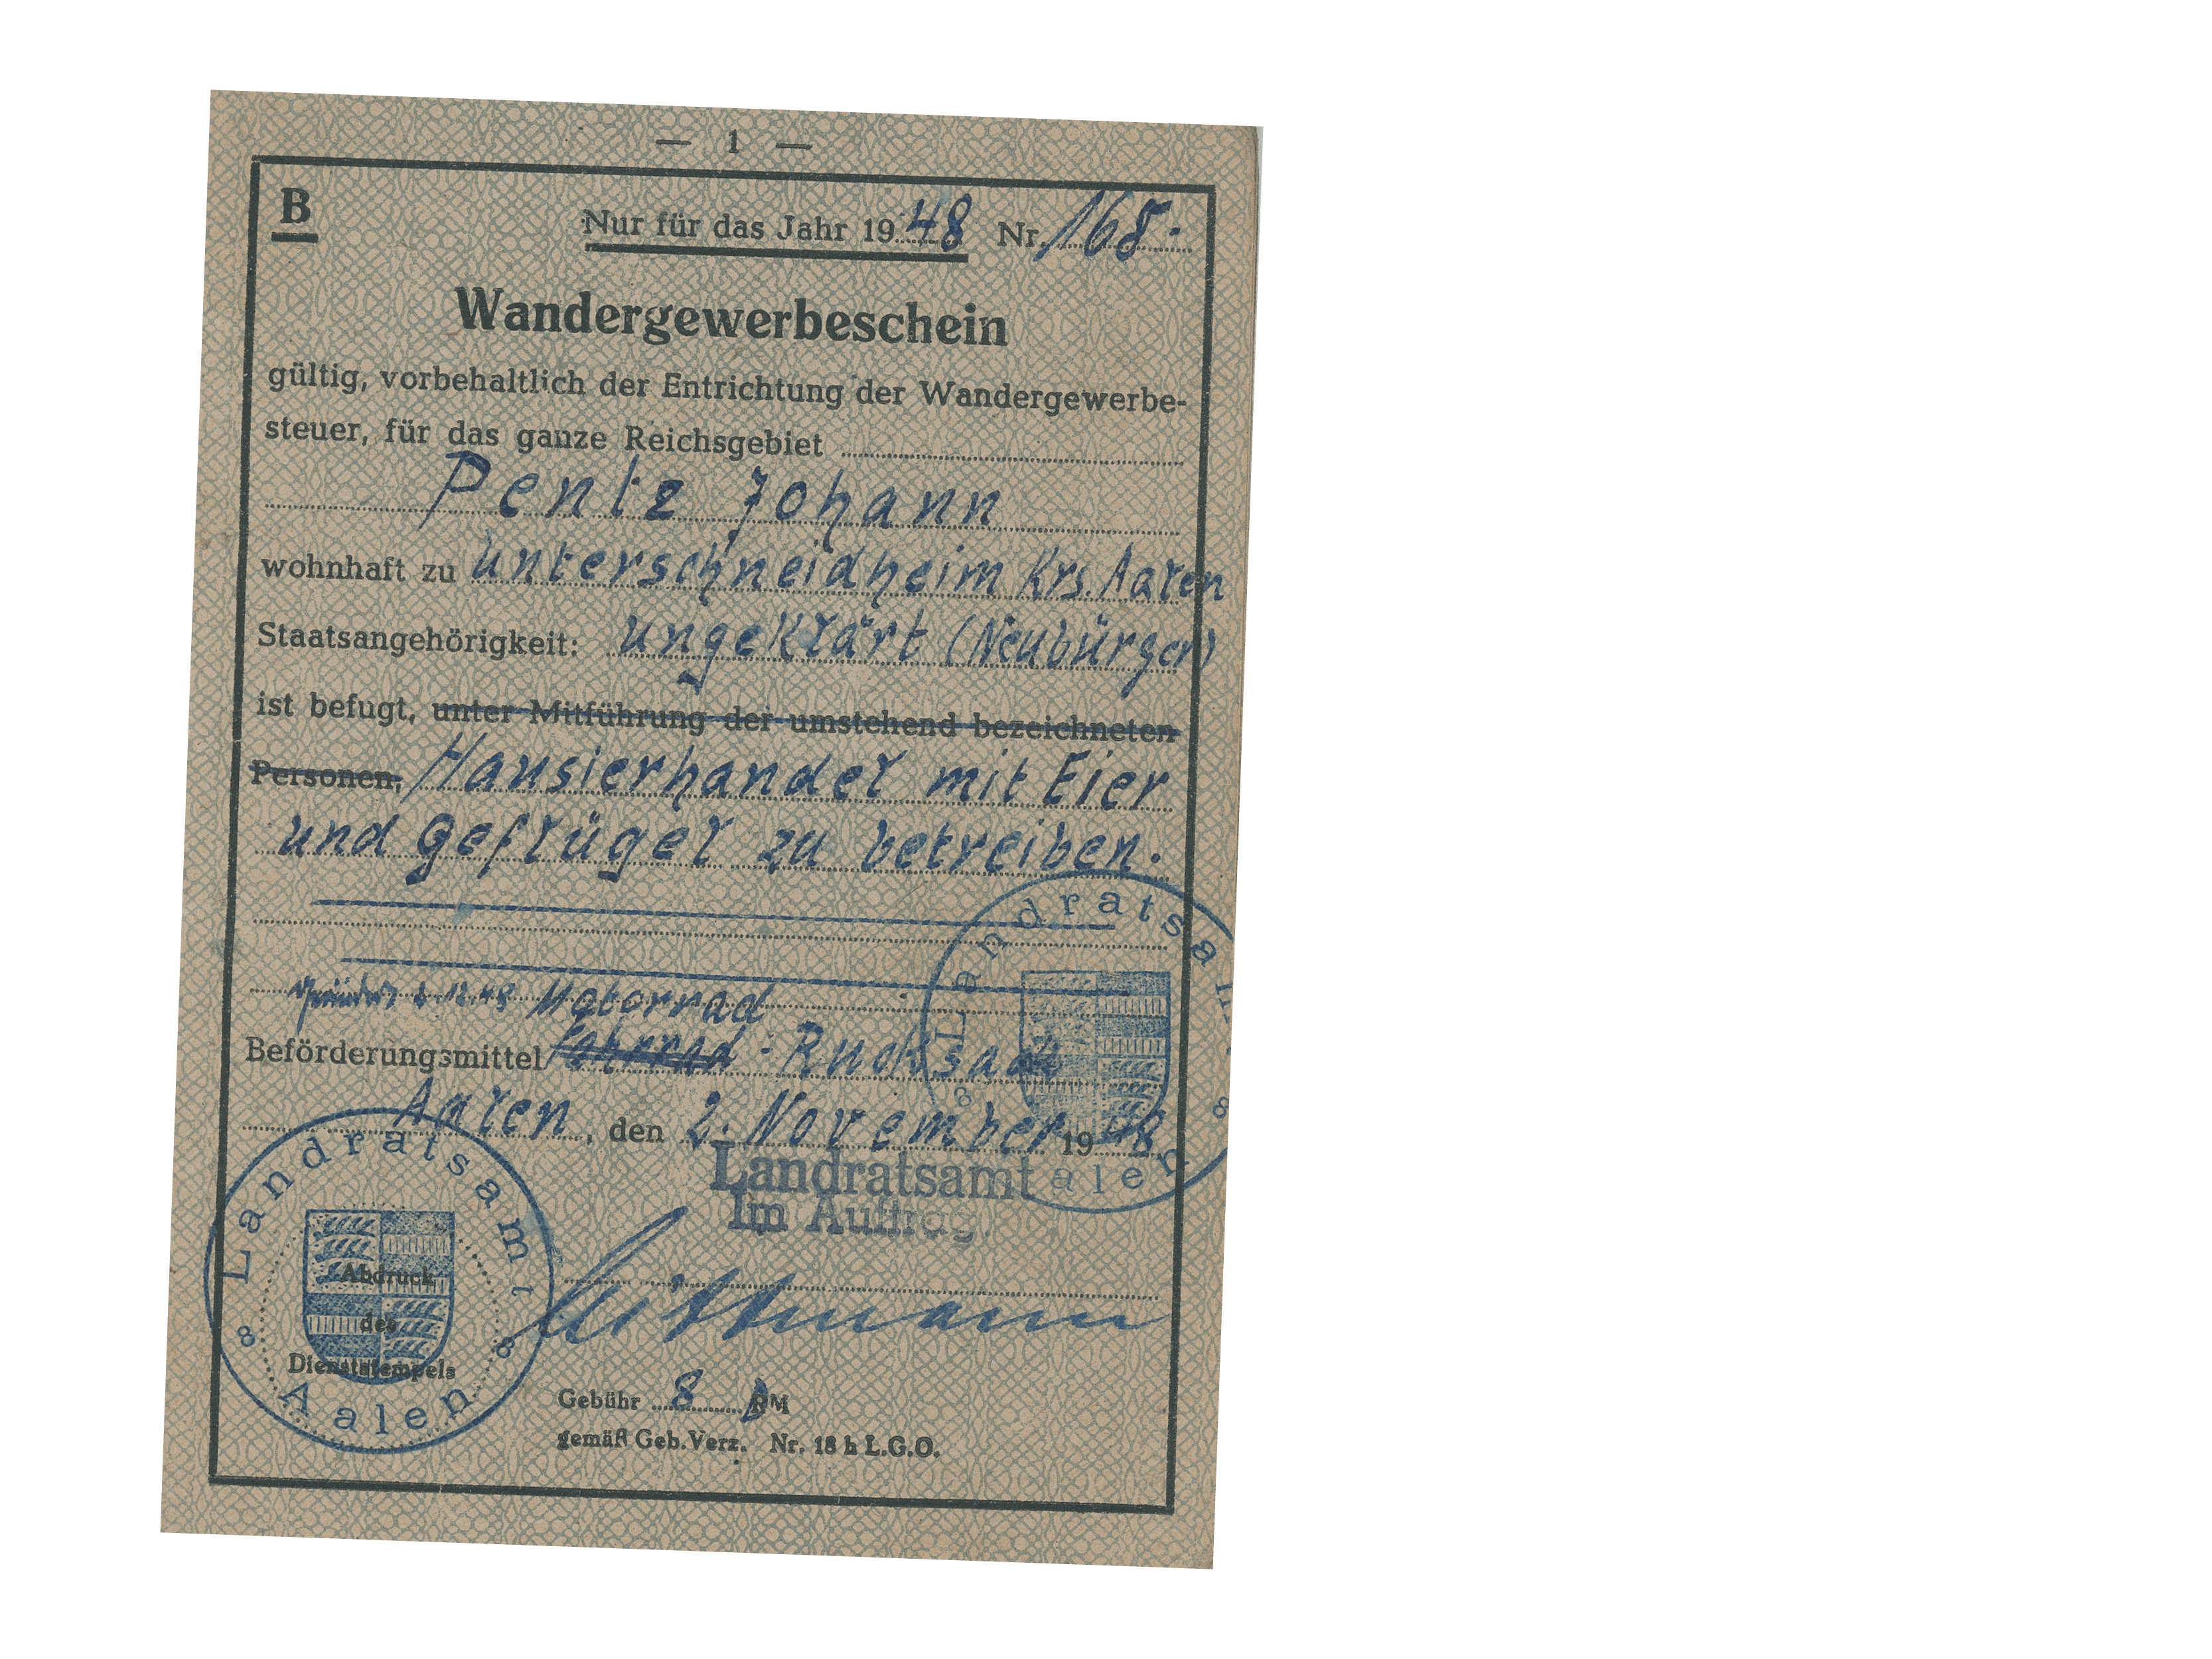 — 1 —
B
Nur für das Jahr 1948 Nr. 168.
Wandergewerbeschein
gültig, vorbehaltlich der Entrichtung der Wandergewerbe-
steuer, für das ganze Reichsgebiet
Pentz Johann
wohnhaft zu Unterschneidheim Krs. Aalen
Staatsangehörigkeit: ungeklärt (Neubürger)
ist befugt, unter Mitführung der umstehend bezeichneten
Personen, Hausierhandel mit Eier
und Geflügel zu betreiben.
Motorrad
Beförderungsmittel Fahrrad - Rucksack
Aalen, den 2. November 1948
Landratsamt
Im Auftrag
Landratsamt Aalen
Abdruck
des
Dienststempels
Landratsamt Aalen
Gebühr 8 DM
gemäß Geb.Verz. Nr. 18 h L.G.O.